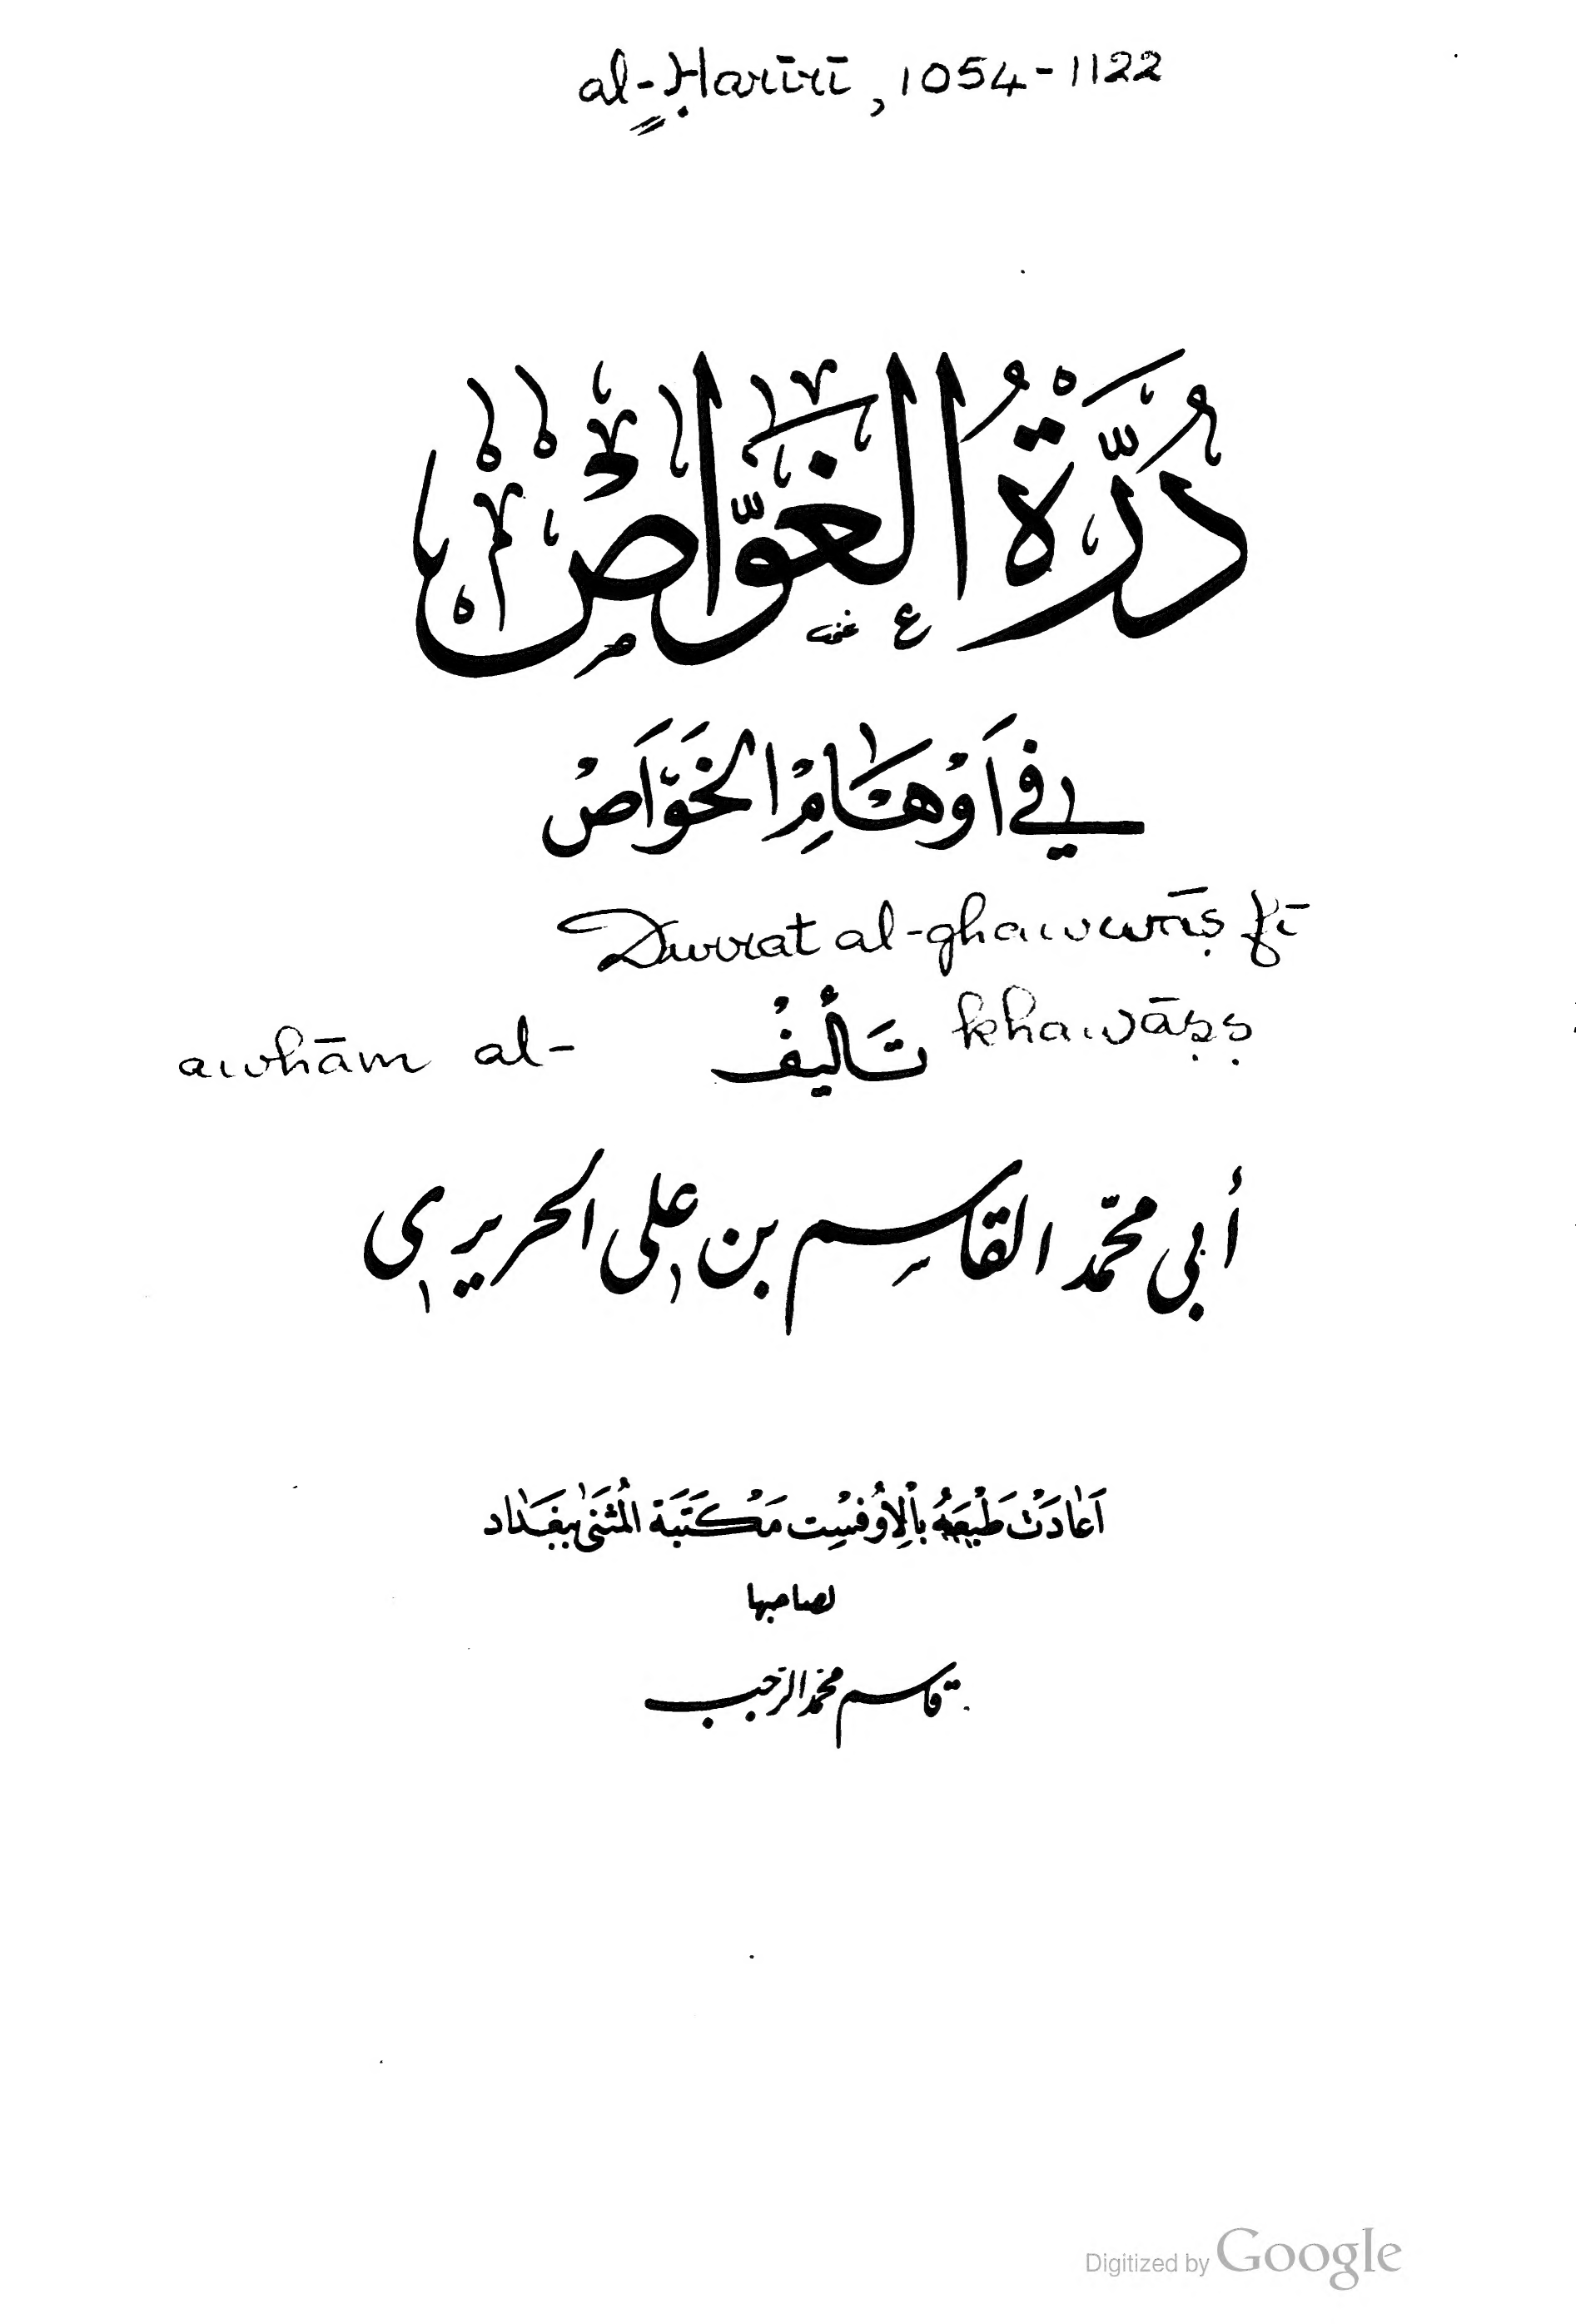 al-Ḥarīrī, 1054-1122
دُرَّةُ الغَوَّاصْ
في أَوْهَامِ الخَوَاصْ
Durrat al-ghawwāṣ fī
awhām al- تَأليفُ khawāṣṣ
أبي محمّد القاسِم بن علي الحريري
اَعَادَتْ طَبْعَهُ بِالاُوفْسِت مَكْتَبَة المُثَنى بِبَغْدَاد
لصاحبها
قاسم محمّد الرّجب
Digitized by Google